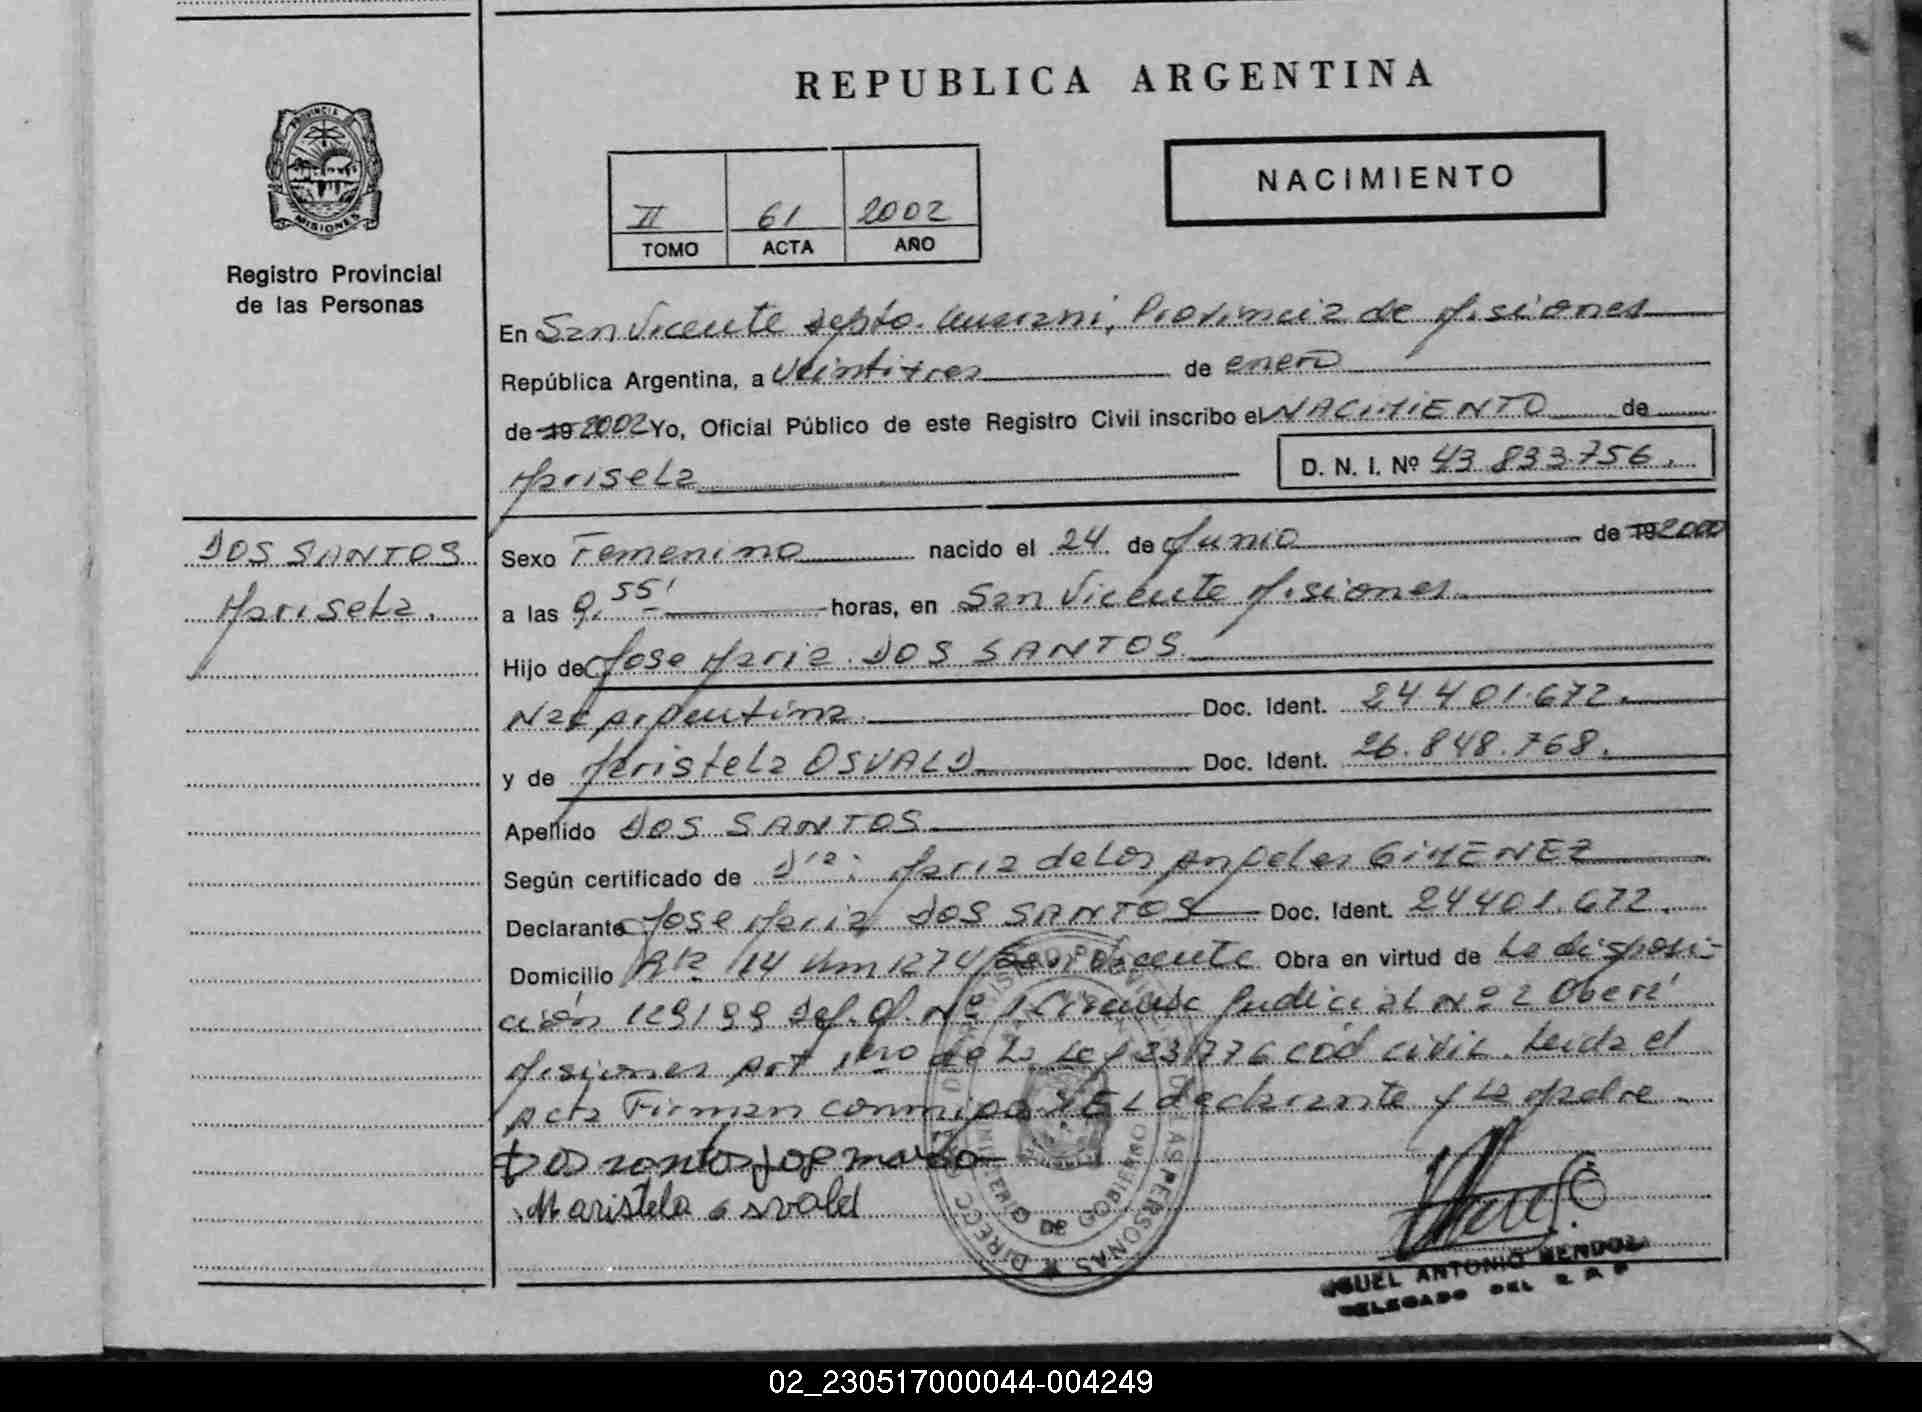 REPUBLICA ARGENTINA
PROVINCIA DE
MISIONES
Registro Provincial
de las Personas
NACIMIENTO
II 61 2002
TOMO ACTA AÑO
En San Vicente Depto. Guarani, Provincia de Misiones
República Argentina, a Veintitres de enero
de 19 2002 Yo, Oficial Público de este Registro Civil inscribo el NACIMIENTO de
Marisela D. N. I. Nº 43.833.756.
DOS SANTOS
Marisela.
Sexo Femenino nacido el 24 de Junio de 19 2000
a las 9.55' horas, en San Vicente Misiones
Hijo de Jose Maria DOS SANTOS
Nac Argentina Doc. Ident. 24.401.672.
y de Maristela OSVALD Doc. Ident. 26.848.768.
Apellido DOS SANTOS
Según certificado de Dra: Maria de Los Angeles GIMENEZ
Declarante Jose Maria DOS SANTOS Doc. Ident. 24.401.672.
Domicilio Rta 14 Km 1274 San Vicente Obra en virtud de La disposi-
ción 129/99 Def. Of. Nº 1 Judicial Nº 2 Oberá
Misiones Art 1ro de La Ley 23.776 cód civil. Leida el
Acta Firman conmigo EL declarante y La Madre
Dos santos jose maria
Maristela osvald
DE LAS PERSONAS
DIRECC
MINISTERIO DE GOBIERNO
MIGUEL ANTONIO MENDOZA
DELEGADO DEL R. P. P.
02_230517000044-004249